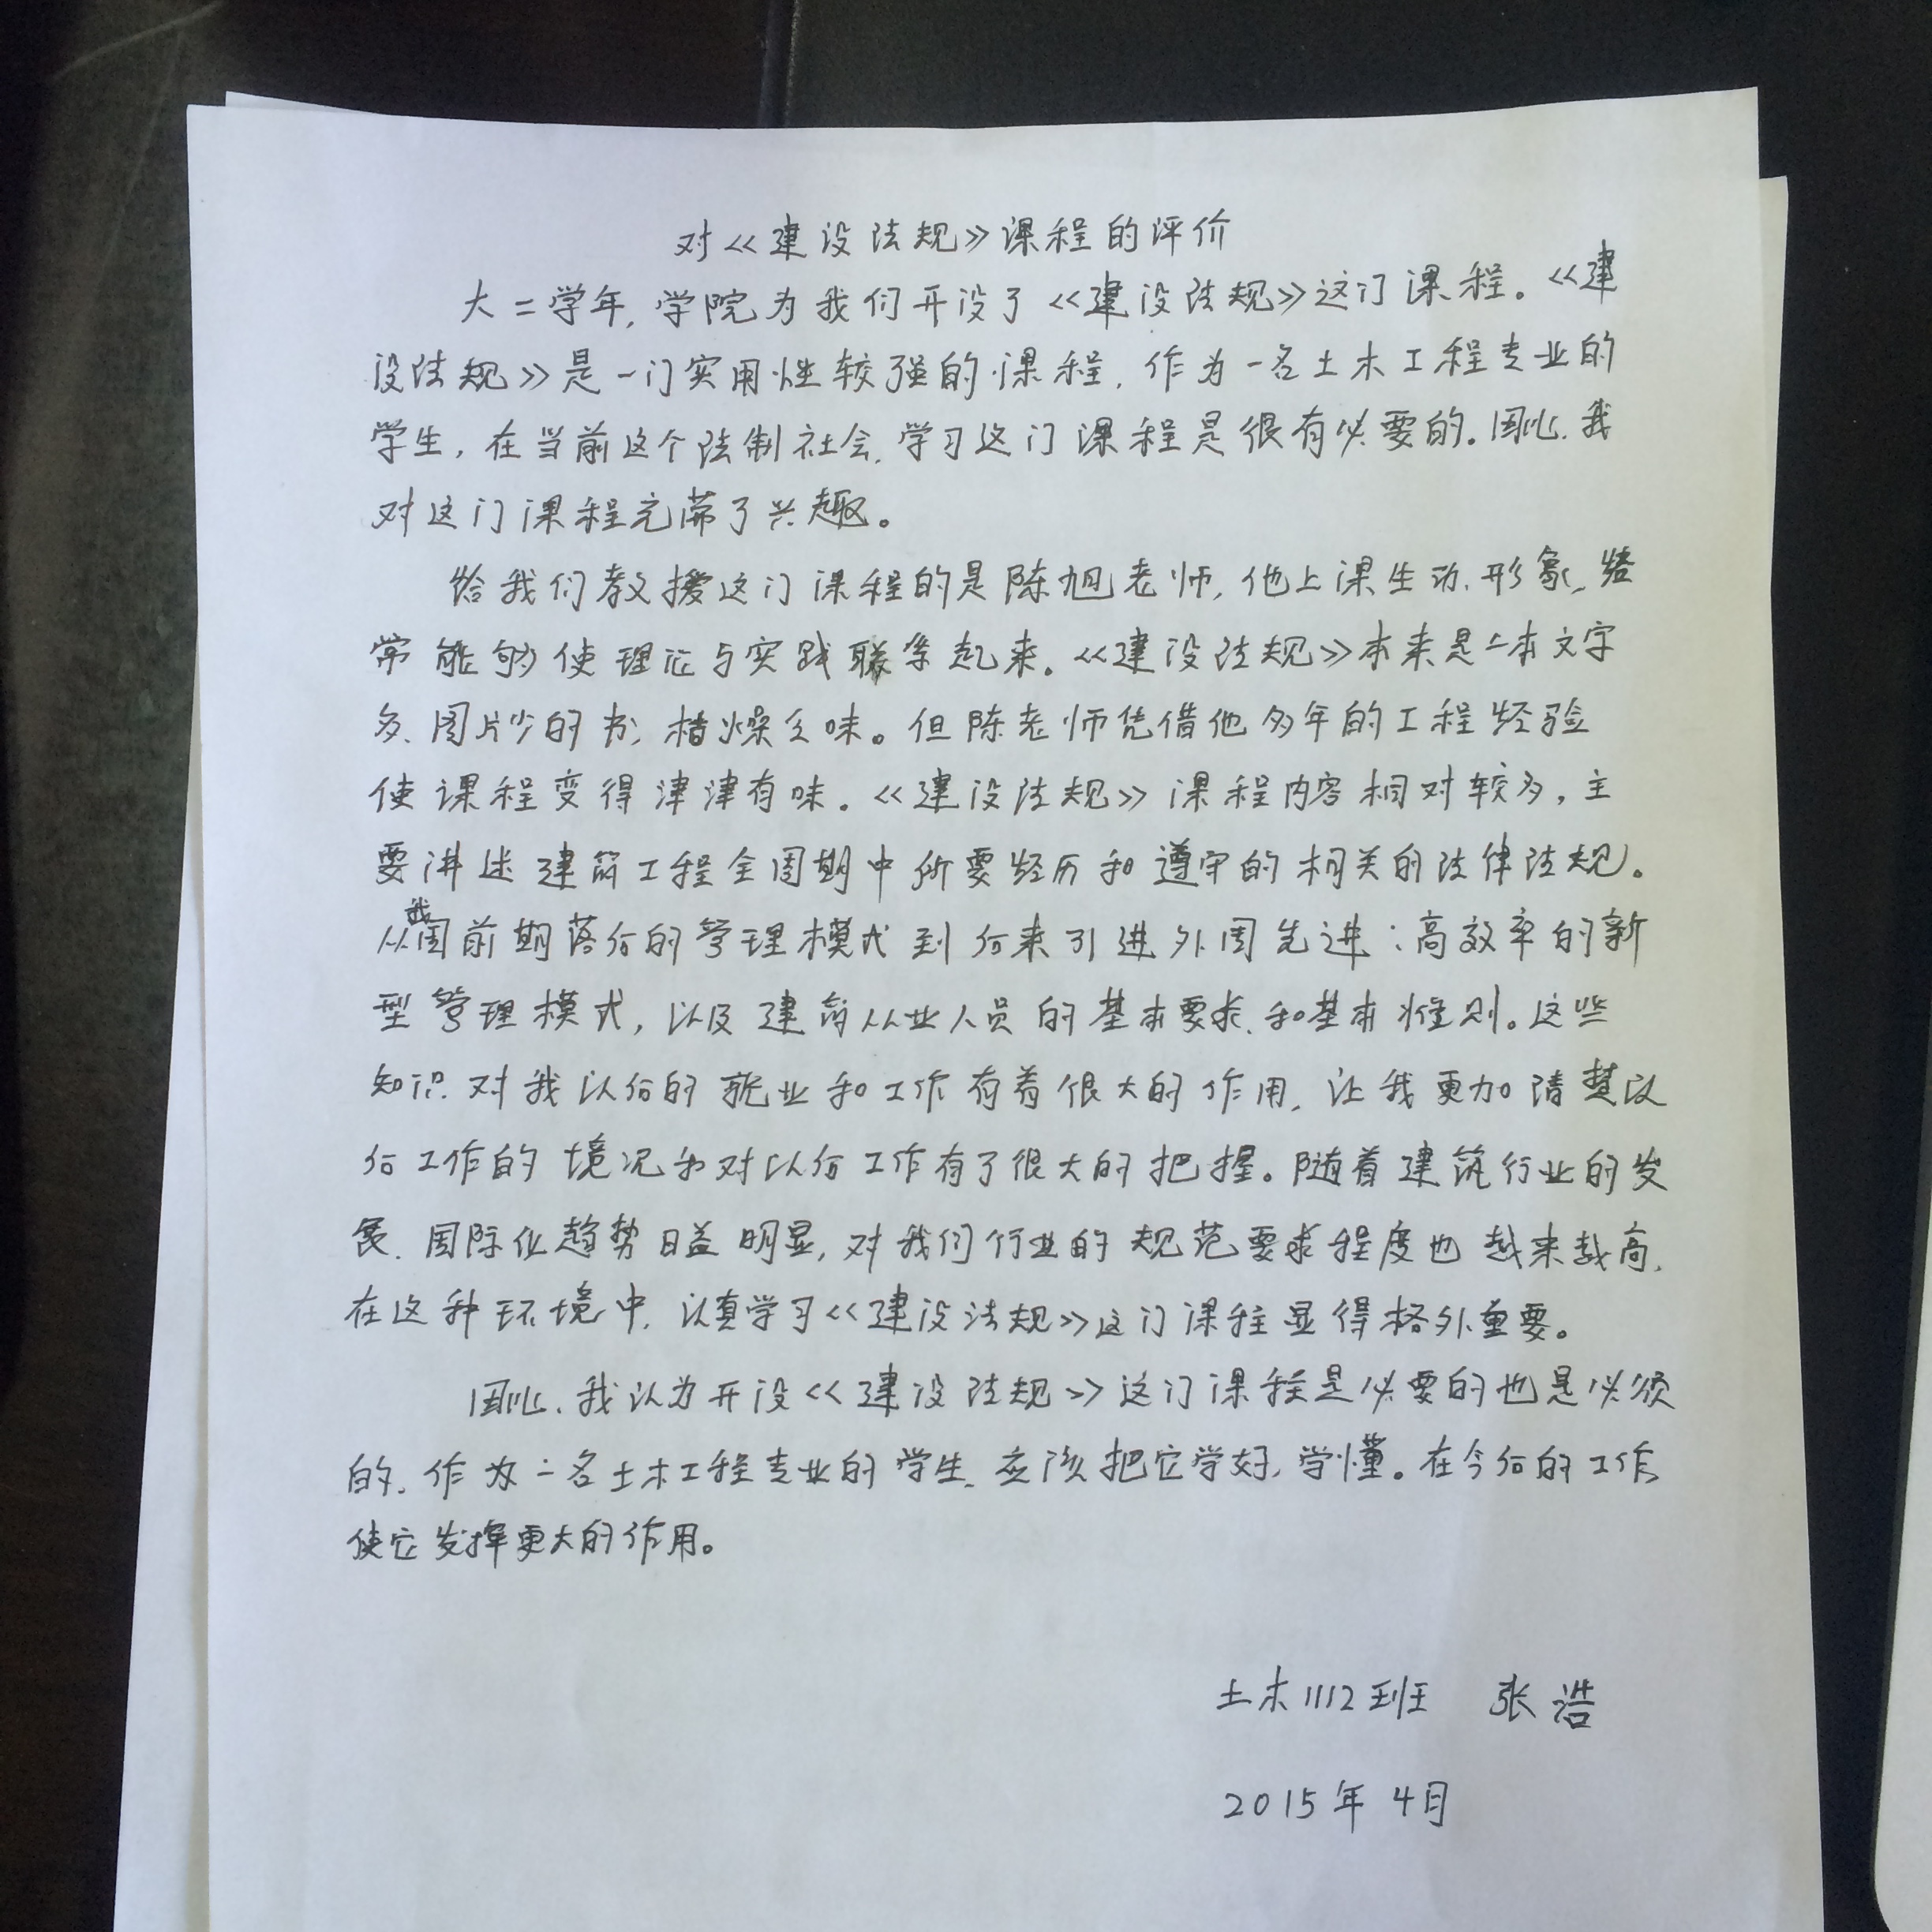 对《建设法规》课程的评价
大二学年,学院为我们开设了《建设法规》这门课程。《建
设法规》是一门实用性较强的课程,作为一名土木工程专业的
学生,在当前这个法制社会,学习这门课程是很有必要的。因此,我
对这门课程充满了兴趣。
给我们教授这门课程的是陈旭老师,他上课生动、形象,经
常能够使理论与实践联系起来。《建设法规》本来是一本文字
多、图片少的书,枯燥乏味。但陈老师凭借他多年的工程经验
使课程变得津津有味。《建设法规》课程内容相对较多,主
要讲述建筑工程全周期中所要经历和遵守的相关的法律法规。
从我国前期落后的管理模式到后来引进外国先进、高效率的新
型管理模式,以及建筑从业人员的基本要求和基本准则。这些
知识对我以后的就业和工作有着很大的作用,让我更加清楚以
后工作的境况和对以后工作有了很大的把握。随着建筑行业的发
展、国际化趋势日益明显,对我们行业的规范要求程度也越来越高,
在这种环境中,认真学习《建设法规》这门课程显得格外重要。
因此,我认为开设《建设法规》这门课程是必要的也是必须
的,作为一名土木工程专业的学生,应该把它学好,学懂。在今后的工作
使它发挥更大的作用。
土木1112班 张浩
2015年4月